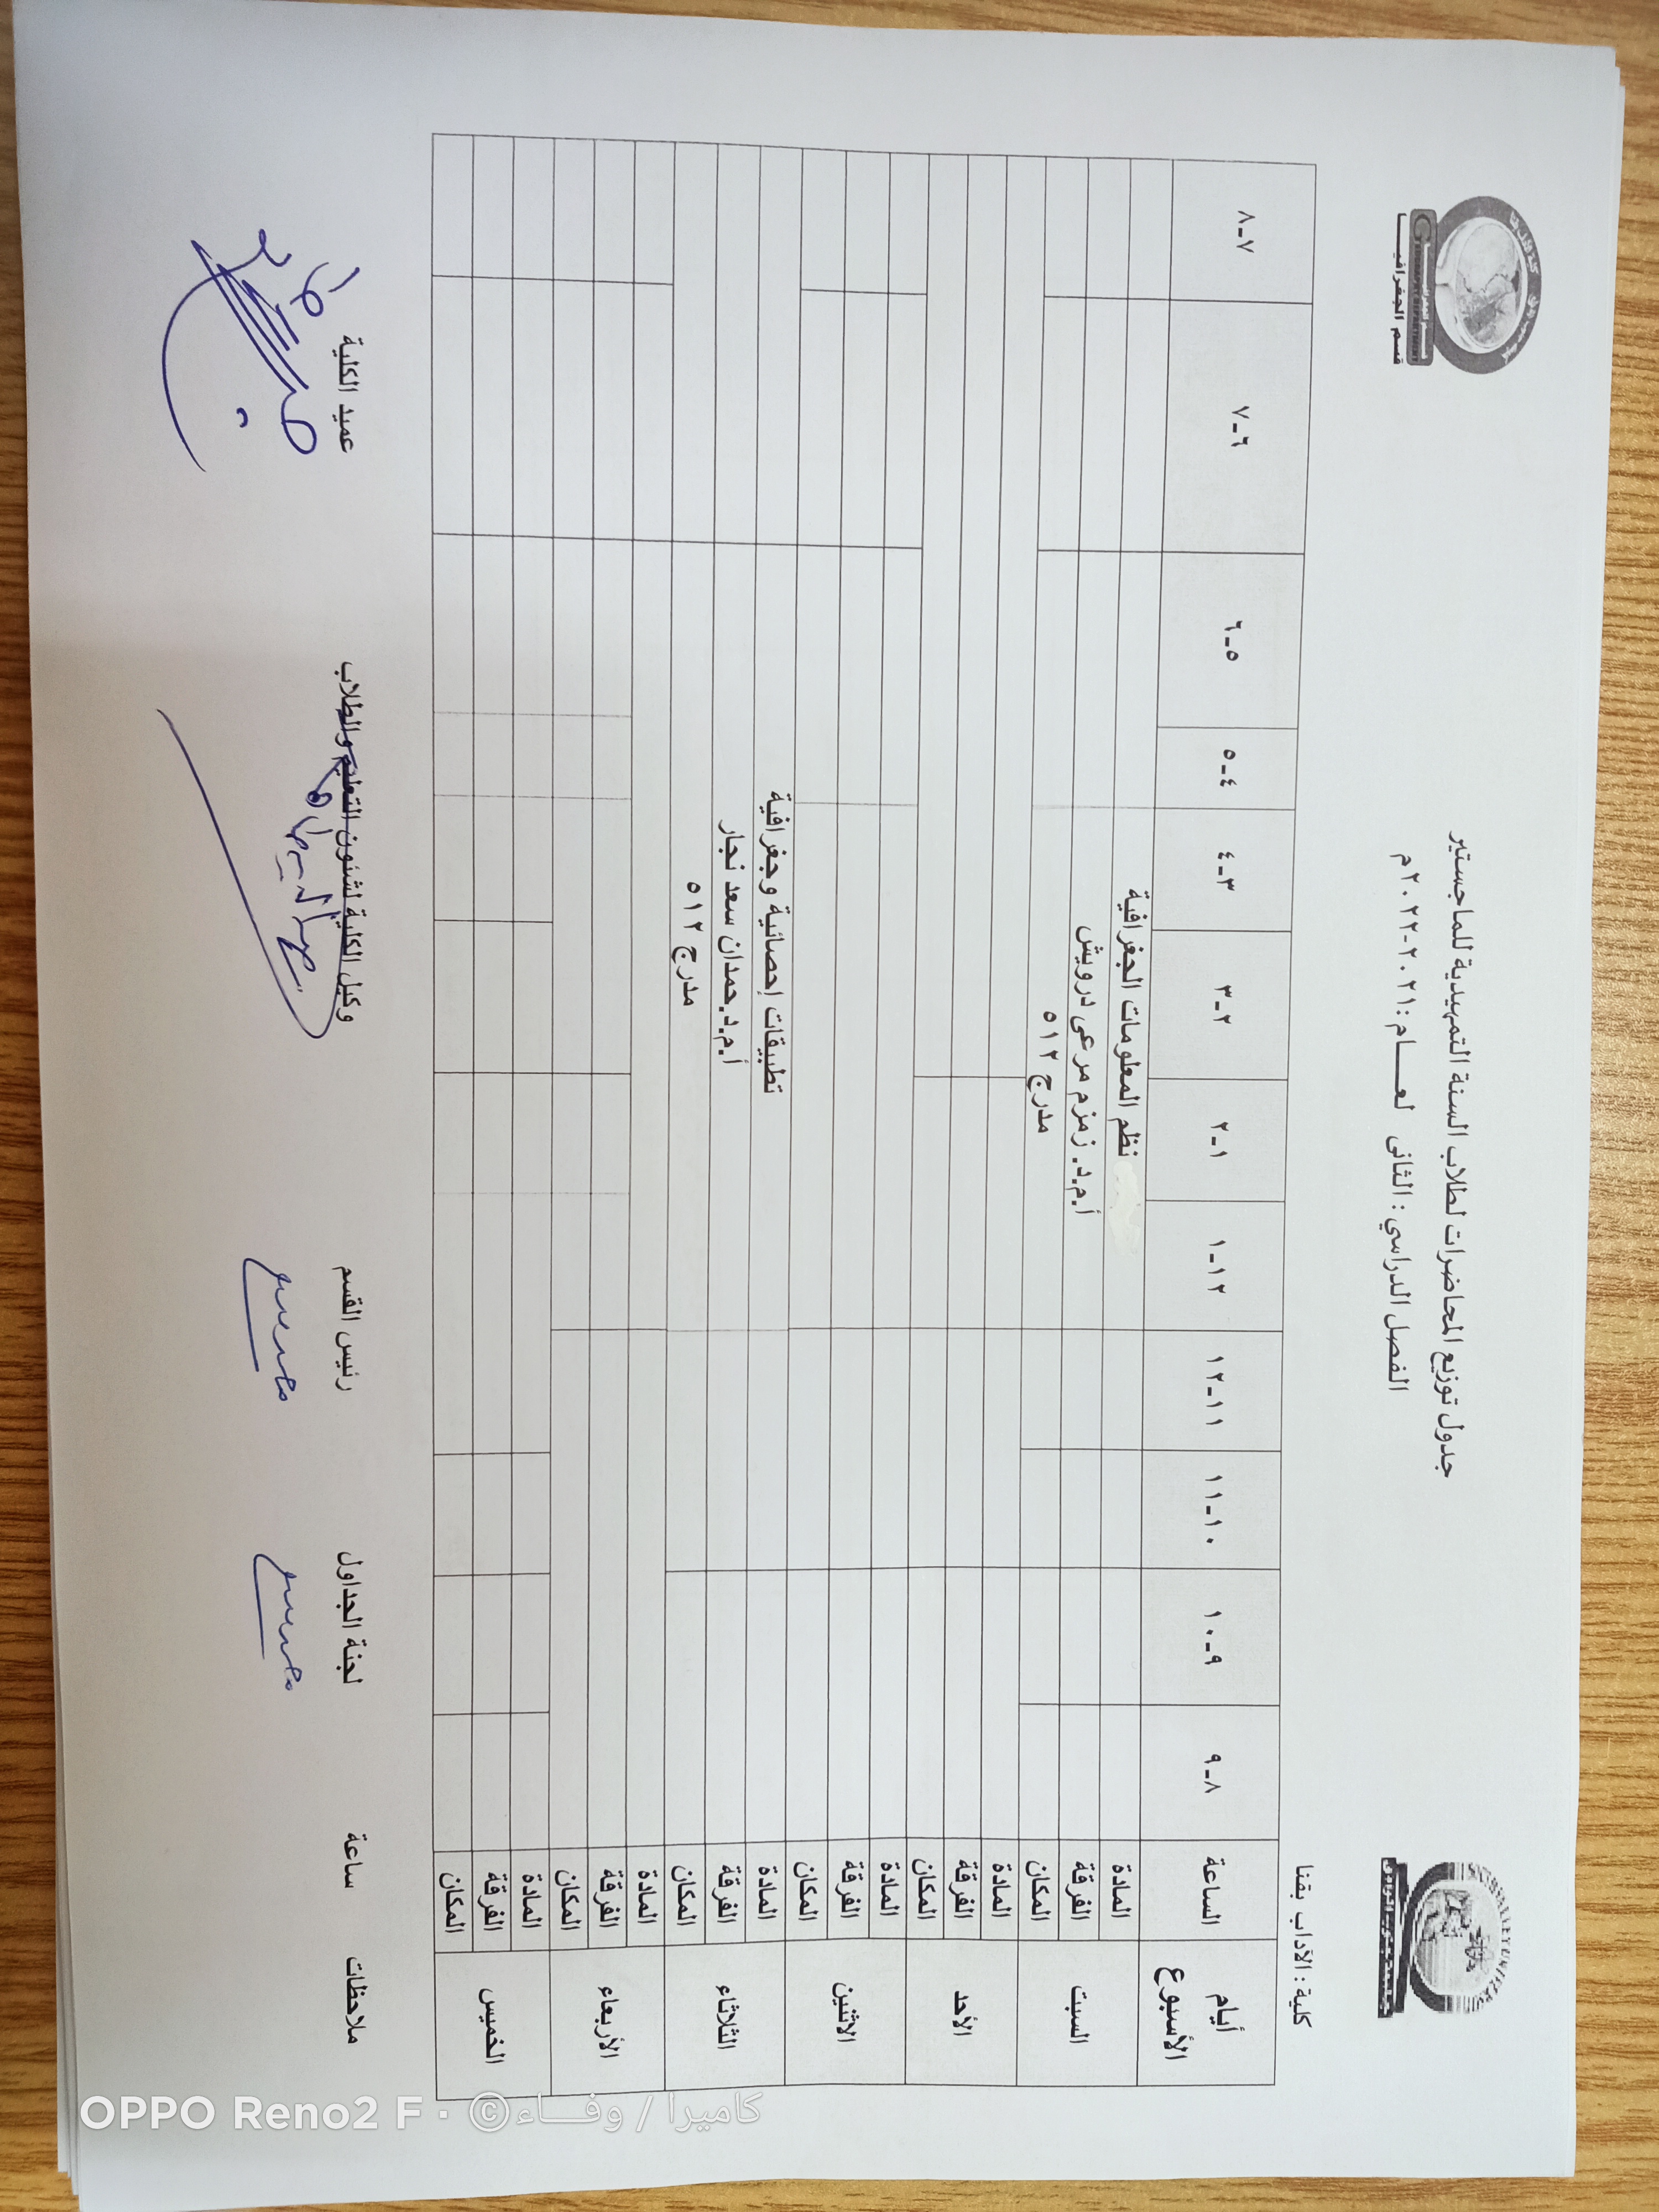 كلية : الآداب بقنا
قسم الجغرافيا
جدول توزيع المحاضرات لطلاب السنة التمهيدية للماجستير
الفصل الدراسي : الثانى لعـــام : ٢٠٢١-٢٠٢٢م
أيام الأسبوع الساعة ٨-٩ ٩-١٠ ١٠-١١ ١١-١٢ ١٢-١ ١-٢ ٢-٣ ٣-٤ ٤-٥ ٥-٦ ٦-٧ ٧-٨
السبت
المادة نظم المعلومات الجغرافية
الفرقة أ.م.د. زمزم مرعى درويش
المكان مدرج ٥١٢
الأحد
المادة
الفرقة
المكان
الاثنين
المادة
الفرقة
المكان
الثلاثاء
المادة تطبيقات إحصائية وجغرافية
الفرقة أ.م.د.حمدان سعد نجار
المكان مدرج ٥١٢
الأربعاء
المادة
الفرقة
المكان
الخميس
المادة
الفرقة
المكان
ملاحظات ساعة لجنة الجداول رئيس القسم وكيل الكلية لشئون التعليم والطلاب عميد الكلية
OPPO Reno2 F · ©كاميرا / وفـــاء